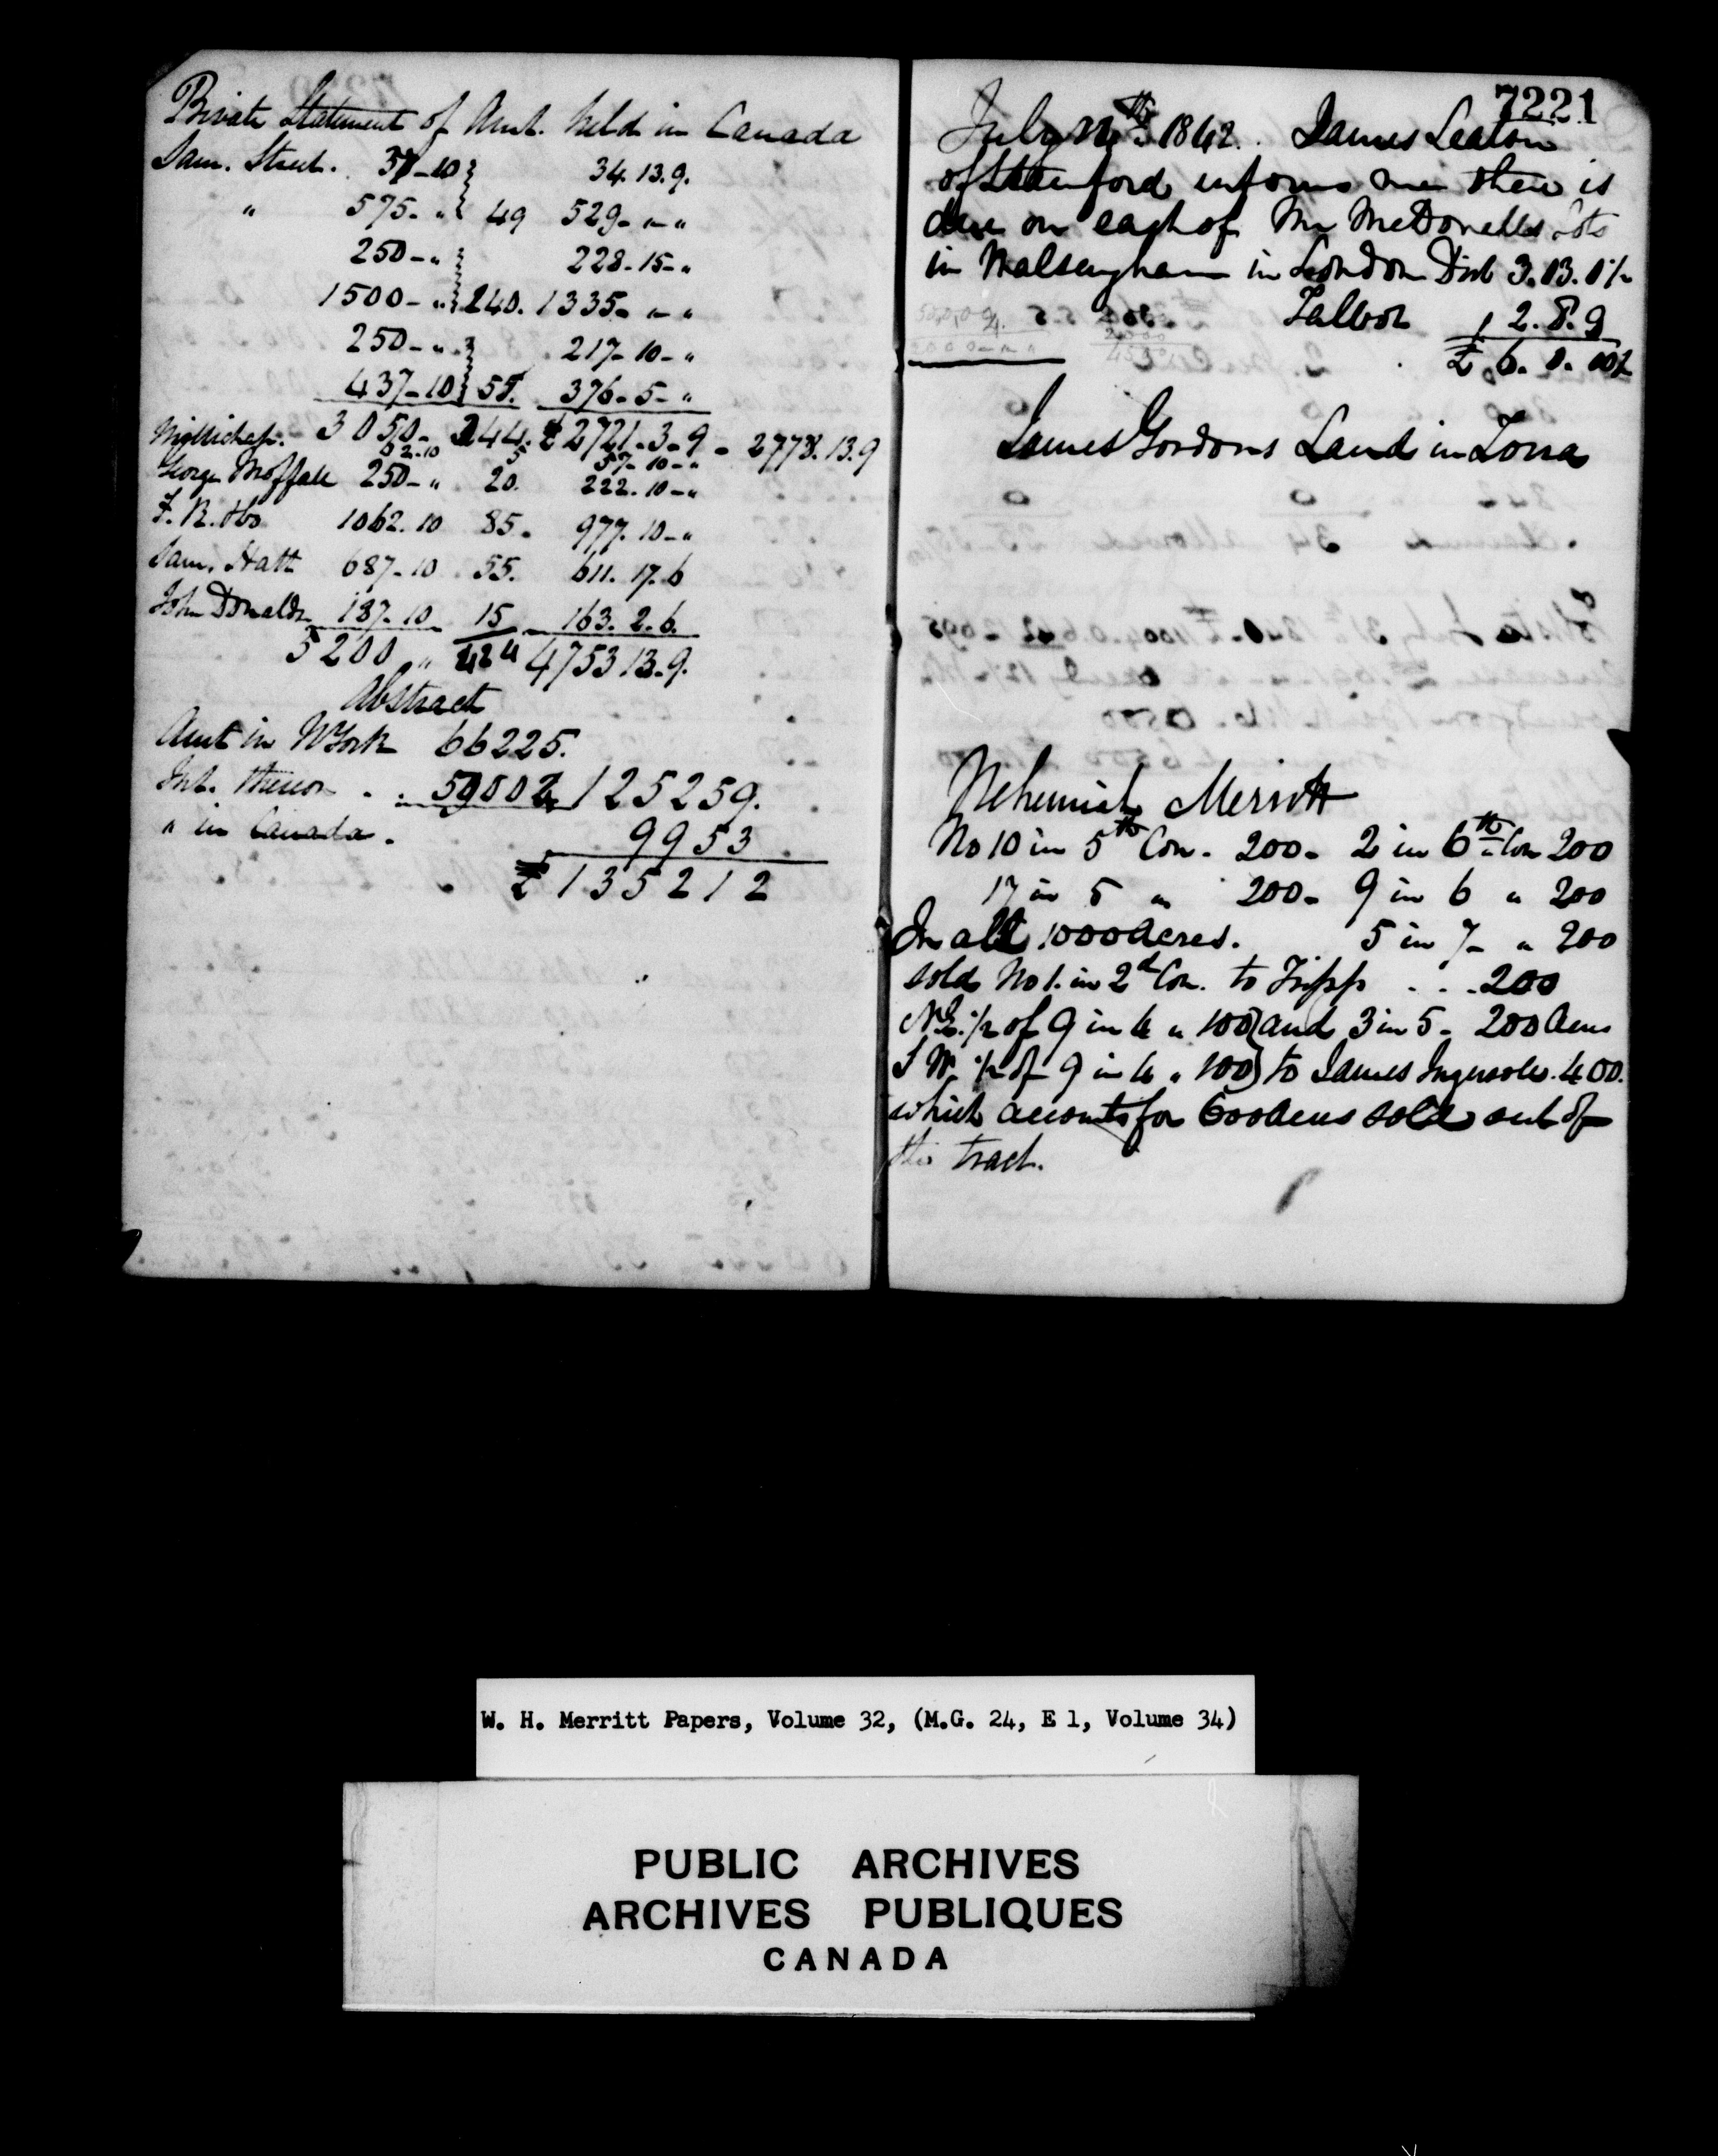 Private Statement of Amt. held in Canada
Sam. Street. 37-10 34.13.9.
" 575-" 49 529-"-"
250-" 228-15-"
1500-" 240. 1335-"-"
250-" 217-10-"
437-10 55. 376-5-"
3050- 344. £2721-3-9 - 2778.13.9
62-10 5 57-10-"
George Moffatt 250-" 20. 222.10-"
1062.10 85. 977.10-"
Sam. Hatt 687-10 55. 611.17.6
John Donalds 187-10 15 163.2.6.
5200 " 424 4753 13-9.
Abstract
Amt in NYork 66225.
Int. thereon 59002 125259.
" in Canada. 9953
£135212
7221
July 1842. James Leaton
of Stamford informs me there is
due on each of Mr McDonells Lots
in Walsingham in London Dist 3.13.0½
Talbot 2.8.9
£ 6.0.10½
James Gordons Land in Zorra
Nehemiah Merritt
No 10 in 5th Con. 200- 2 in 6th Con 200
17 in 5 " 200- 9 in 6 " 200
In all 1000 Acres. 5 in 7- " 200
sold No 1. in 2d Con. to Tripp . . . 200
N.E. ½ of 9 in 4 " 100} and 3 in 5- 200 Acres
S W. ½ of 9 in 4 " 100} to James Ingersoll. 400.
which accounts for 600 Acres sold out of
the tract.
W. H. Merritt Papers, Volume 32, (M.G. 24, E 1, Volume 34)
PUBLIC ARCHIVES
ARCHIVES PUBLIQUES
CANADA